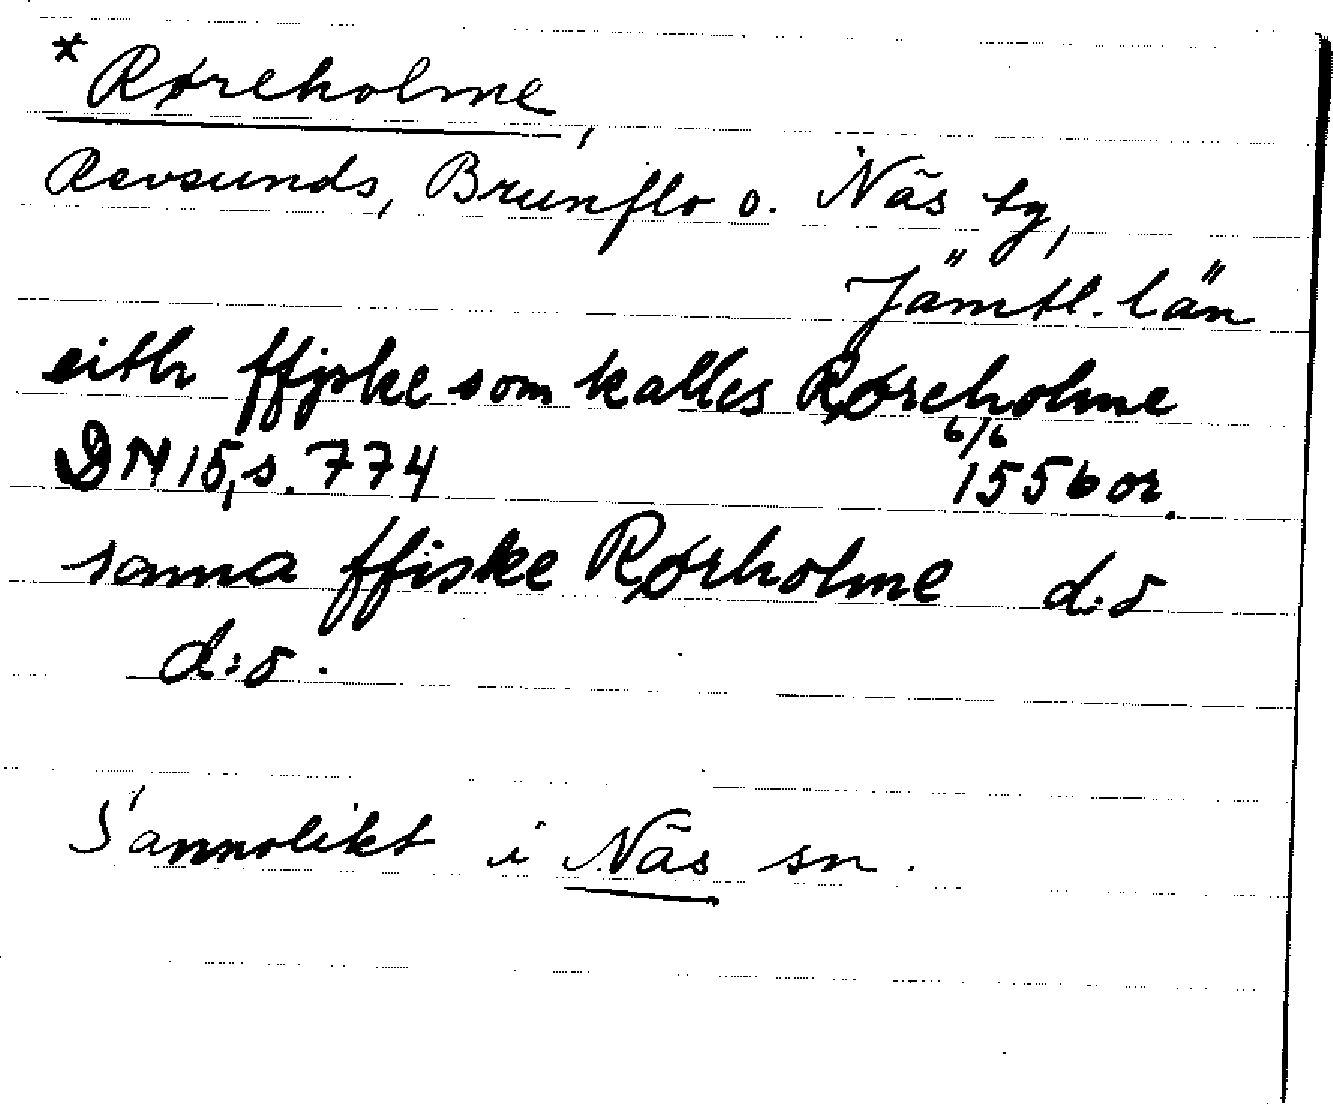 *Røreholme,
Revsunds, Brunflo o. Näs tg,
Jämtl. län
eith ffyske som kalles Røreholme
DN 15, s. 774 6/6 1556 or.
samma ffiske Rørholme d:o
d:o.
Sannolikt i Näs sn.